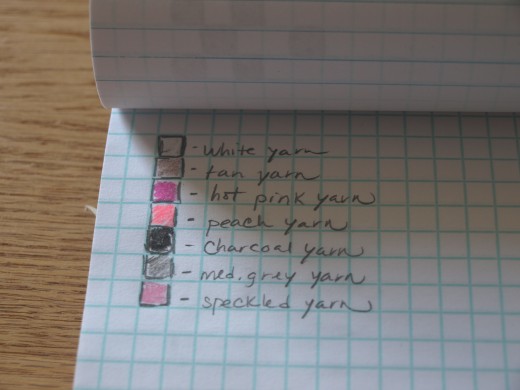 - white yarn
- tan yarn
- hot pink yarn
- peach yarn
- charcoal yarn
- med. grey yarn
- speckled yarn